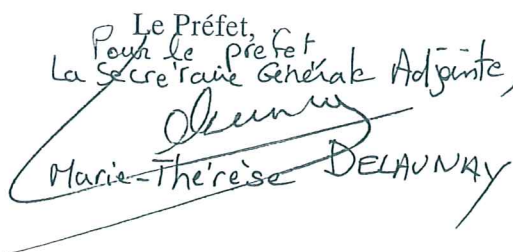 Le Préfet,
Pour le préfet
La Secrétaire Générale Adjointe,
Marie-Thérèse DELAUNAY